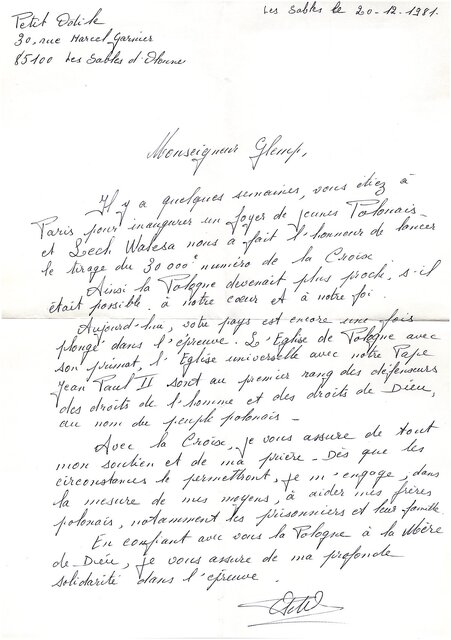 Petit Odile
30, rue Marcel Garnier
85100 Les Sables d'Olonne
Les Sables le 20-12-1981.
Monseigneur Glemp,
Il y a quelques semaines, vous étiez à
Paris pour inaugurer un foyer de jeunes Polonais -
et Lech Walesa nous a fait l'honneur de lancer
le tirage du 30 000e numéro de la Croix.
Ainsi la Pologne devenait plus proche, s'il
était possible, à notre cœur et à notre foi.
Aujourd'hui, votre pays est encore une fois
plongé dans l'épreuve. L'Eglise de Pologne avec
son primat, l'Eglise universelle avec notre Pape
Jean Paul II sont au premier rang des défenseurs
des droits de l'homme et des droits de Dieu,
au nom du peuple polonais -
Avec la Croix, je vous assure de tout
mon soutien et de ma prière - Dès que les
circonstances le permettront, je m'engage, dans
la mesure de mes moyens, à aider mes frères
polonais, notamment les prisonniers et leur famille.
En confiant avec vous la Pologne à la Mère
de Dieu, je vous assure de ma profonde
solidarité dans l'épreuve.